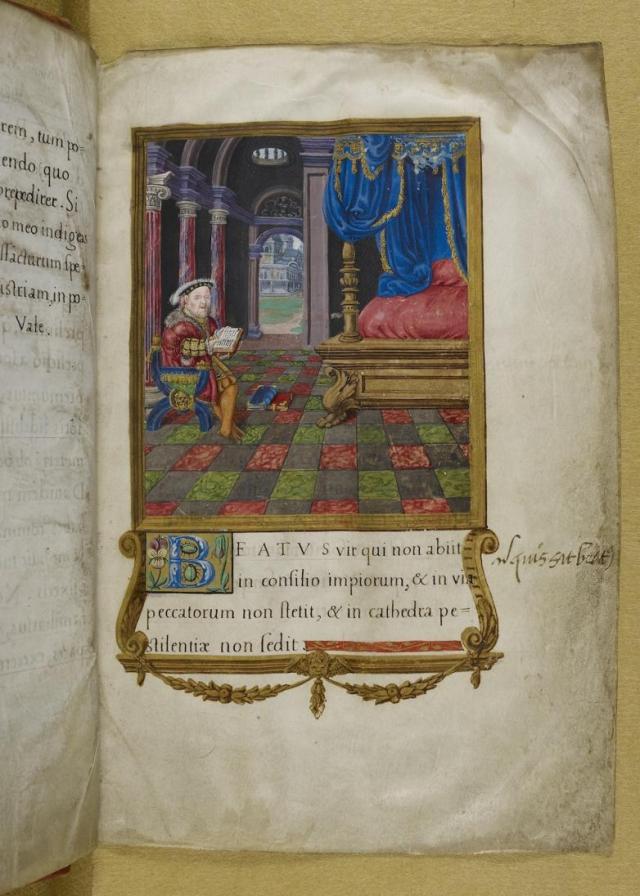 rem, tum po=
endo quo
prepedirer. Si
o meo indiges
ffacturum spe=
istriam, in po=
Vale.
BEATVS vir qui non abiit
in consilio impiorum, & in via
peccatorum non stetit, & in cathedra pe=
stilentiæ non sedit.
quis sit